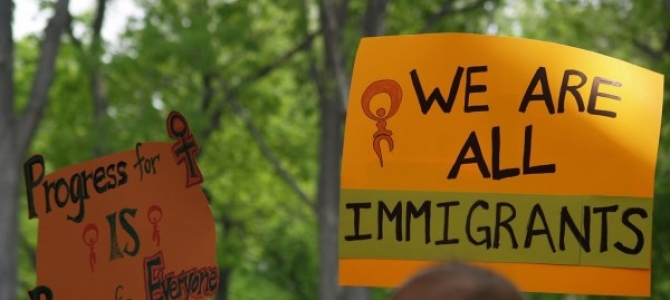 Progress for
IS
Everyone
WE ARE
ALL
IMMIGRANTS